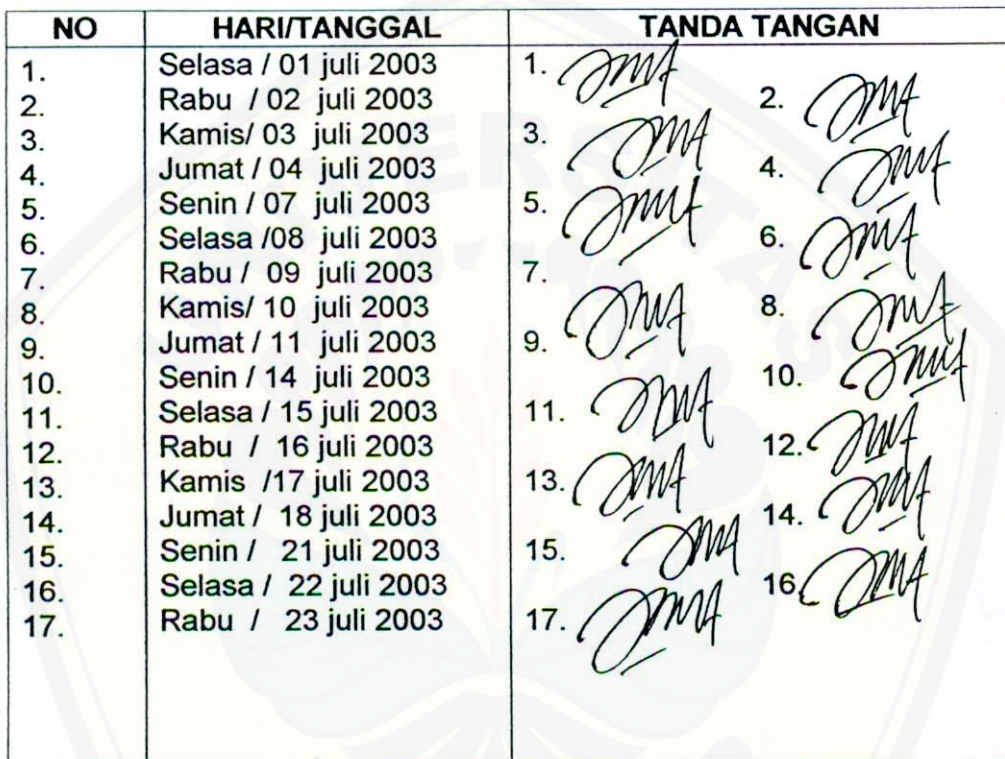 NO HARI/TANGGAL TANDA TANGAN
1. Selasa / 01 juli 2003 1.
2. Rabu / 02 juli 2003 2.
3. Kamis/ 03 juli 2003 3.
4. Jumat / 04 juli 2003 4.
5. Senin / 07 juli 2003 5.
6. Selasa /08 juli 2003 6.
7. Rabu / 09 juli 2003 7.
8. Kamis/ 10 juli 2003 8.
9. Jumat / 11 juli 2003 9.
10. Senin / 14 juli 2003 10.
11. Selasa / 15 juli 2003 11.
12. Rabu / 16 juli 2003 12.
13. Kamis /17 juli 2003 13.
14. Jumat / 18 juli 2003 14.
15. Senin / 21 juli 2003 15.
16. Selasa / 22 juli 2003 16.
17. Rabu / 23 juli 2003 17.